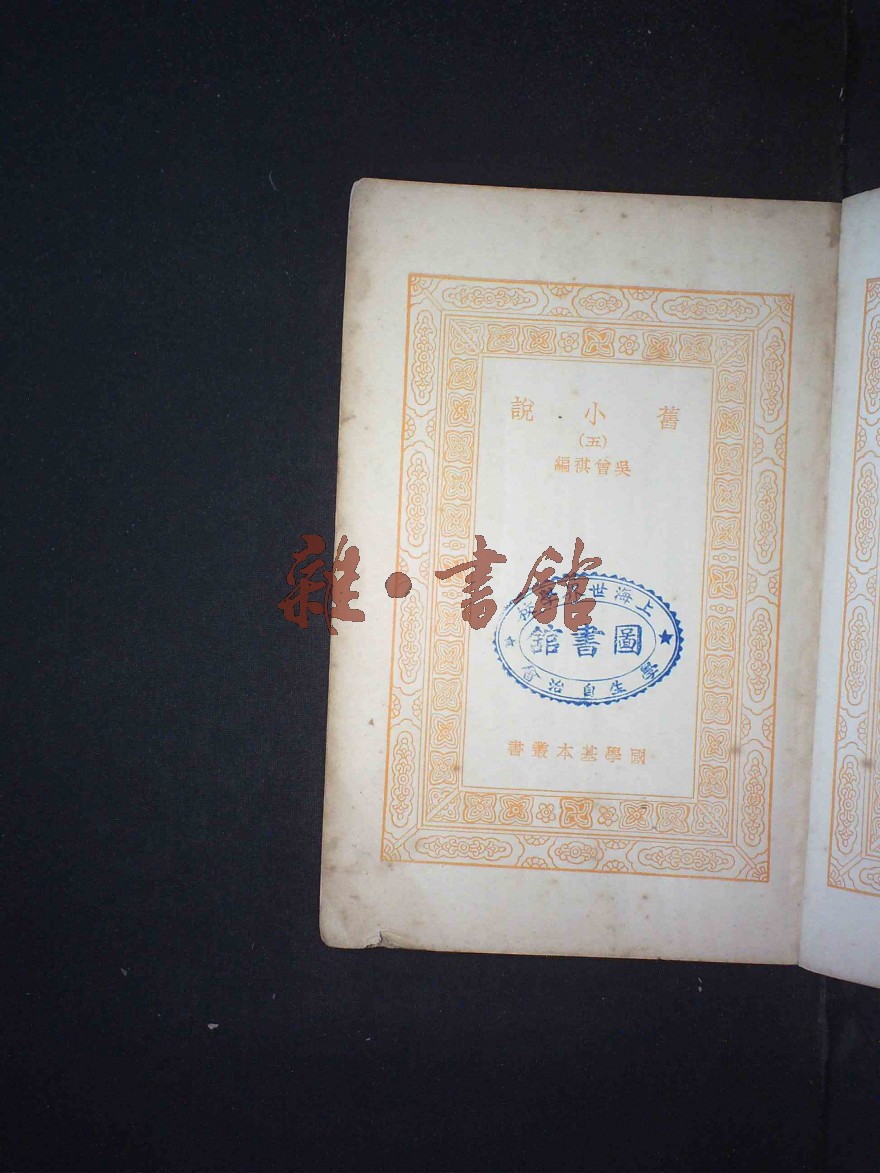 舊小說
(五)
吳曾祺編
雜·書館
上海世界學校
圖書館
學生自治會
國學基本叢書